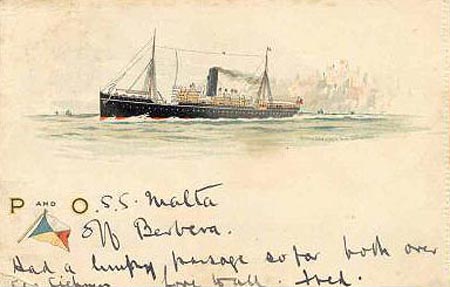 P AND O. S.S. Malta
off Berbera.
Had a lumpy passage so far both over
love to all. Fred.